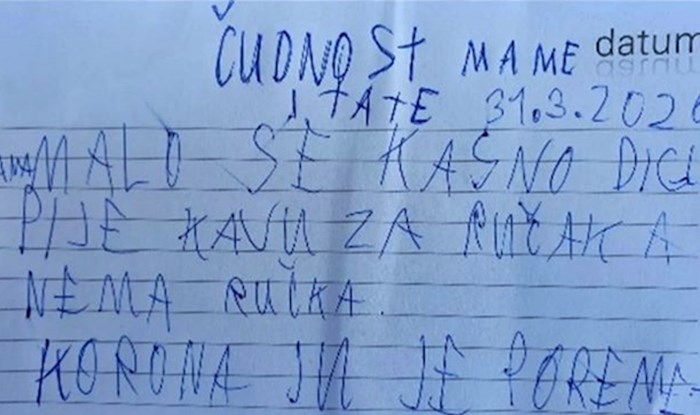 ČUDNOST MAME datum
I TATE 31.3.2020
MALO SE KASNO DIGL
PIJE KAVU ZA RUČAK A
NEMA RUČKA.
KORONA JU JE POREME